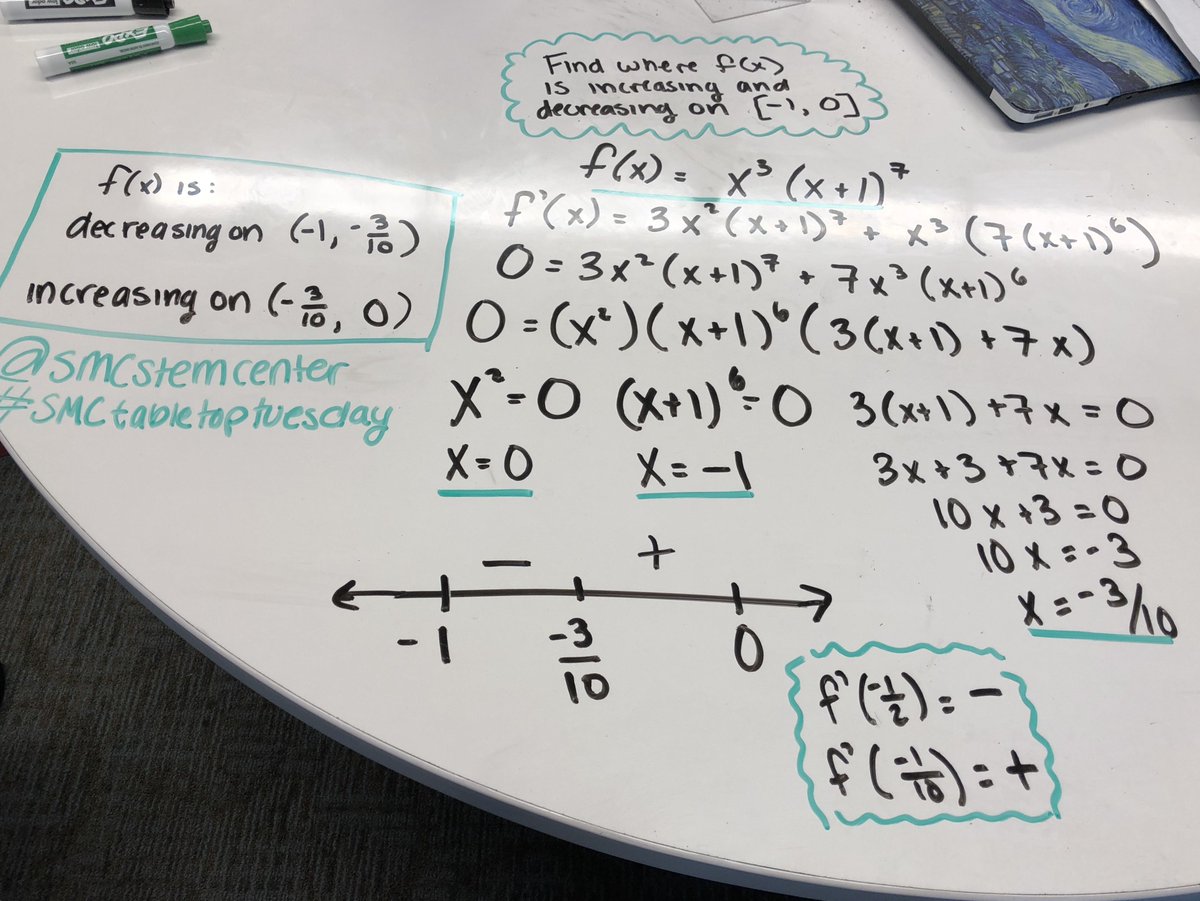 EXPO
Find where f(x)
is increasing and
decreasing on [-1, 0]
f(x) = x³ (x+1)⁷
f'(x) = 3x²(x+1)⁷ + x³ (7(x+1)⁶)
0 = 3x²(x+1)⁷ + 7x³(x+1)⁶
0 = (x²)(x+1)⁶(3(x+1) + 7x)
x² = 0
x = 0
(x+1)⁶ = 0
x = -1
3(x+1) + 7x = 0
3x + 3 + 7x = 0
10x + 3 = 0
10x = -3
x = -3/10
- +
-1 -3/10 0
f'(-1/2) = -
f'(-1/10) = +
f(x) is:
decreasing on (-1, -3/10)
increasing on (-3/10, 0)
@smcstemcenter
#SMCtabletoptuesday